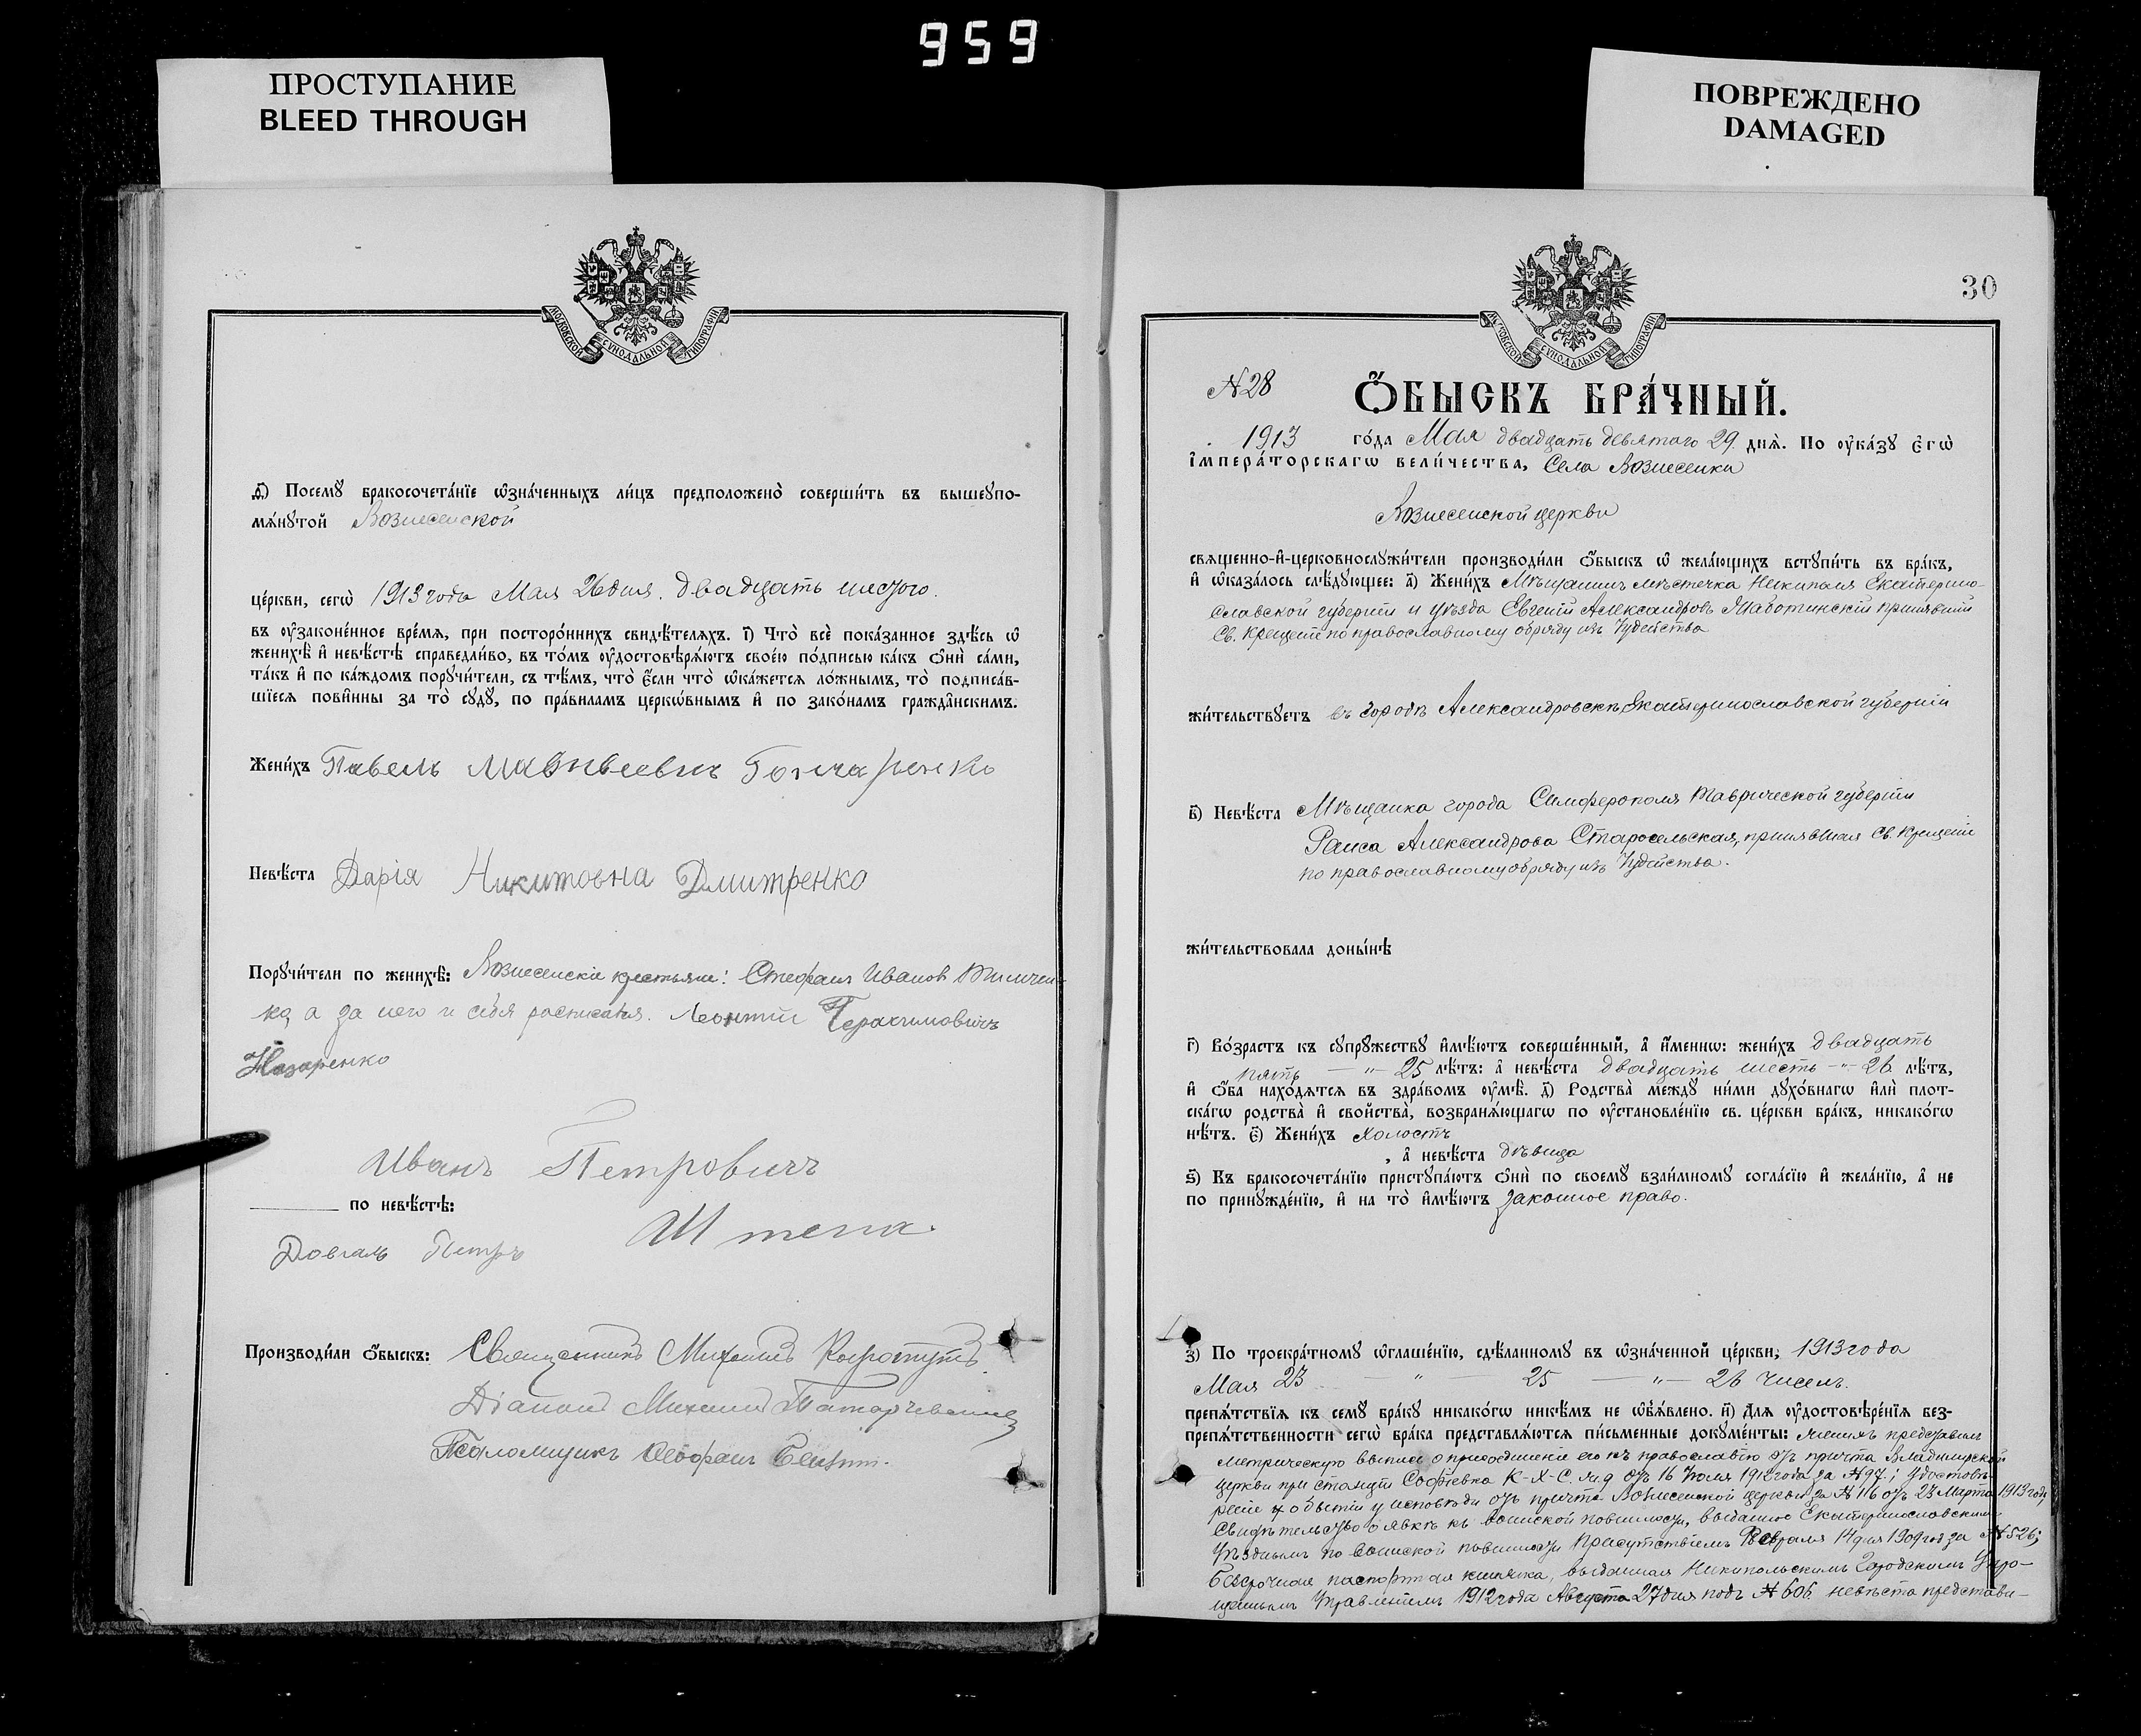 959
ПРОСТУПАНИЕ
BLEED THROUGH
ПОВРЕЖДЕНО
DAMAGED
МОСКОВСКОЙ СѴНОДАЛЬНОЙ ТИПОГРАФІИ
д҃) Посемꙋ бракосочета́нїе ѡ҆зна́ченныхъ ли́цъ предположено̀ соверши́ть въ вышеꙋпо-
мѧ́нꙋтой Вознесенской
це́ркви, сегѡ̀ 1913 года Мая 26 дня. двадцать шестого.
въ ᲂу҆законе́нное вре́мѧ, при посторо́ннихъ свидѣ́телѧхъ. і҃) Что̀ всѐ пока́занное здѣ́сь ѡ҆
женихѣ̀ и҆ невѣ́стѣ справедли́во, въ то́мъ ᲂу҆достовѣрѧ́ютъ свое́ю по́дписью ка́къ ѻ҆нѝ са́ми,
та́къ и҆ по ка́ждомъ порꙋчи́тели, съ тѣ́мъ, что̀ є҆́сли что̀ ѡ҆ка́жетсѧ ло́жнымъ, то̀ подписа́в-
шїесѧ пови́нны за то̀ сꙋдꙋ̀, по пра́виламъ церко́внымъ и҆ по зако́намъ гражда́нскимъ.
Жени́хъ Павелъ Матвѣевич Гончаренко
Невѣ́ста Дарія Никитовна Дмитренко
Порꙋчи́тели по женихѣ̀: Вознесенскіе крестьяне: Стефанъ Иванов
ка, а за него и себя росписался. Леонтій Герасимовичъ
Назаренко
Иванъ Петровичъ
по невѣ́стѣ:
Штепа.
Довгаль Петръ
Производи́ли ѻ҆́быскъ: Священникъ Михаилъ
Діаконъ Михаилъ
Псаломщикъ
30
МОСКОВСКОЙ СѴНОДАЛЬНОЙ ТИПОГРАФІИ
№ 28
Ѻ҆́БЫСКЪ БРА́ЧНЫЙ.
1913 го́да Мая двадцать девятаго 29. днѧ̀. По ᲂу҆ка́зꙋ є҆гѡ̀
і҆мпера́торскагѡ вели́чества, Села Вознесенки
Вознесенской церкви
свѧщенно-и҆-церковнослꙋжи́тели производи́ли ѻ҆́быскъ ѡ҆ жела́ющихъ встꙋпи́ть въ бра́къ,
и҆ ѡ҆каза́лось слѣ́дꙋющее: а҃) Жени́хъ Мѣщанинъ мѣстечка Никополя Екатерино-
славской губерніи и уѣзда Евгеній Александровъ Жаботинскій принявшій
Св. Крещеніе по православному обряду изъ Іудейства
жи́тельствꙋетъ въ городѣ Александровскѣ, Екатеринославской губерніи
в҃) Невѣ́ста Мѣщанка города Симферополя Таврической губерніи
Раиса Александрова Старосельская, принявшая Св. Крещеніе
по православному обряду изъ Іудейства.
жи́тельствовала доны́нѣ
г҃) Во́зрастъ къ сꙋпрꙋ́жествꙋ и҆мѣ́ютъ соверше́нный, а҆ и҆́меннѡ: жени́хъ двадцать
пять — „ — 25 лѣ́тъ: а҆ невѣ́ста двадцать шесть — „ — 26 лѣ́тъ,
и҆ ѻ҆́ба нахо́дѧтсѧ въ здра́вомъ ᲂу҆мѣ̀. д҃) Родства̀ междꙋ̀ ни́ми дꙋхо́внагѡ и҆лѝ плот-
ска́гѡ родства̀ и҆ свойства̀, возбранѧ́ющагѡ по ᲂу҆становле́нїю св. це́ркви бра́къ, никако́гѡ
нѣ́тъ. є҃) Жени́хъ Холостъ
, а҆ невѣ́ста дѣвица
ѕ҃) Къ бракосочета́нїю пристꙋпа́ютъ ѻ҆нѝ по своемꙋ̀ взаи́мномꙋ согла́сїю и҆ жела́нїю, а҆ не
по принꙋжде́нїю, и҆ на то̀ и҆мѣ́ютъ законное право.
з҃) По троекра́тномꙋ ѡ҆глаше́нїю, сдѣ́ланномꙋ въ ѡ҆зна́ченной це́ркви, 1913 года
Мая 23 — „ — 25 — „ — 26 чиселъ.
препѧ́тствїѧ къ семꙋ̀ бра́кꙋ никако́гѡ никѣ́мъ не ѡ҆б̾ѧ́влено. и҃) Длѧ ᲂу҆достовѣре́нїѧ без-
препѧ́тственности сегѡ̀ бра́ка представлѧ́ютсѧ пи́сьменные докꙋме́нты: женихъ представилъ
метрическую выпись о присоединеніи его къ православію отъ причта Владимирской
церкви при станціи Софіевка К-Х-С. ж.д отъ 16 Іюля 1912 года за № 97.; удостовѣ-
реніе о бытіи у исповѣди отъ причта Вознесенской церкви за № 116 отъ 23 Марта 1913 года,
Свидѣтельство о явкѣ къ воинской повинности, выданное Екатеринославскимъ
Уѣзднымъ по воинской повинности Присутствіемъ Февраля 14 дня 1909 год за № 526;
безсрочная паспортная книжка, выданная Никопольскимъ Городскимъ Упро-
щеннымъ Управленіемъ 1912 года Августа 27 дня подъ № 606. невѣста представи-